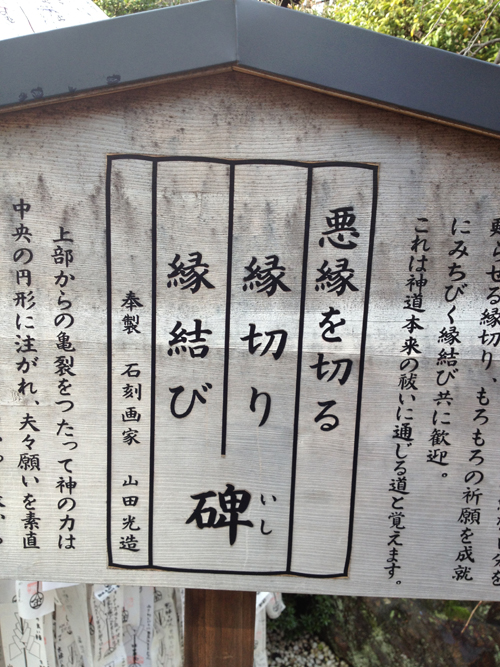 らせる縁切り、もろもろの祈願を成就
にみちびく縁結び共に歓迎。
これは神道本来の祓いに通じる道と覚えます。
悪縁を切る
縁切り
縁結び
碑
いし
奉製 石刻画家 山田光造
上部からの亀裂をつたって神の力は
中央の円形に注がれ、夫々願いを素直